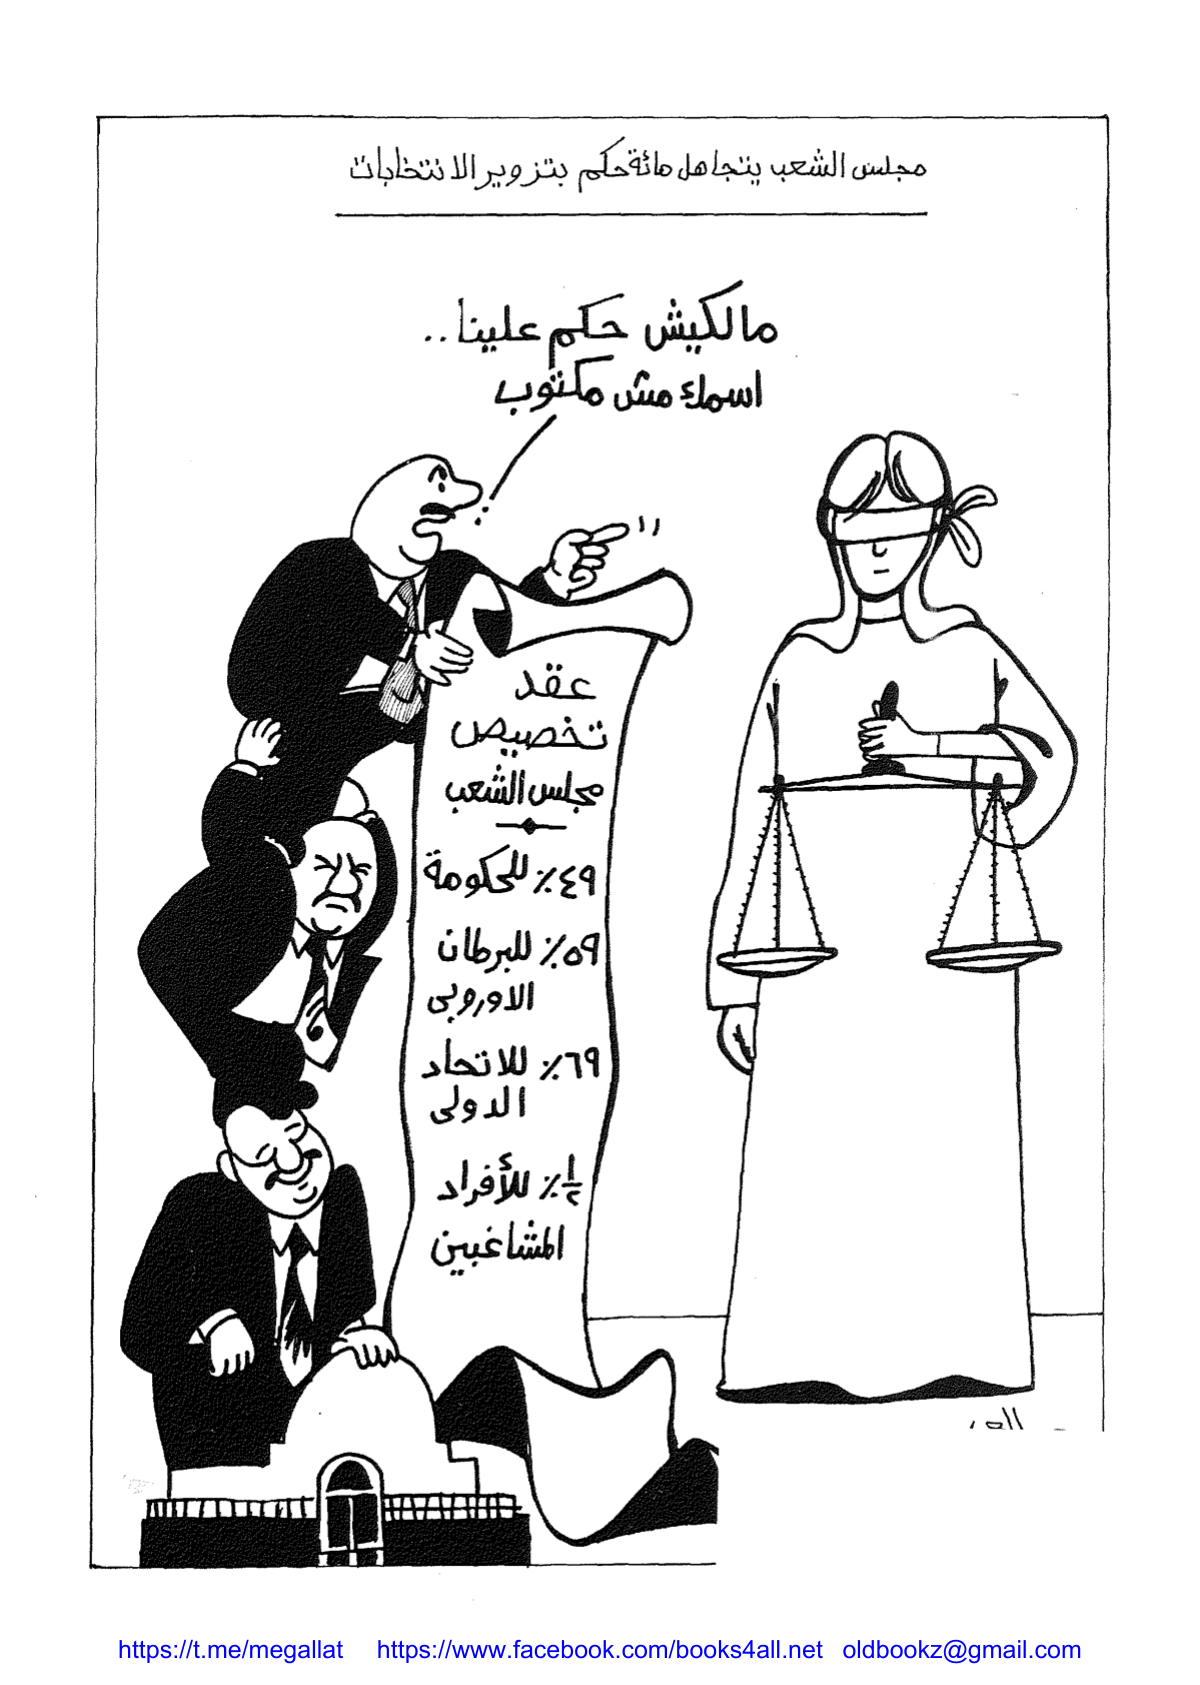 مجلس الشعب يتجاهل مائة حكم بتزوير الانتخابات
مالكيش حكم علينا..
اسمك مش مكتوب
عقد
تخصيص
مجلس الشعب
٤٩٪ للحكومة
٥٩٪ للبرطان
الاوروبى
٦٩٪ للاتحاد
الدولى
½٪ للأفراد
المشاغبين
https://t.me/megallat https://www.facebook.com/books4all.net oldbookz@gmail.com